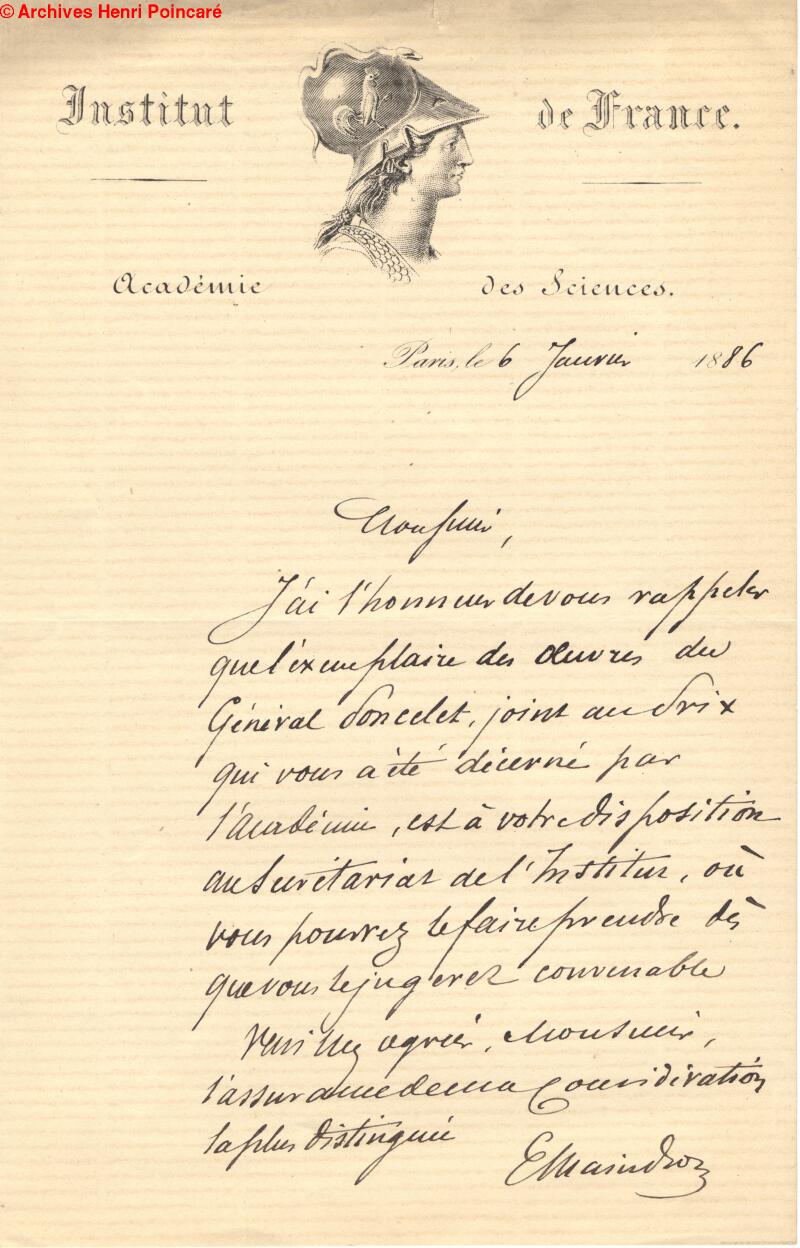 © Archives Henri Poincaré
Institut de France.
Académie des Sciences.
Paris, le 6 Janvier 1886
Monsieur,
J'ai l'honneur de vous rappeler
que l'exemplaire des Œuvres du
Général Poncelet, joint au Prix
qui vous a été décerné par
l'Académie, est à votre disposition
au Secrétariat de l'Institut, où
vous pourrez le faire prendre dès
que vous le jugerez convenable
Veuillez agréer, Monsieur,
l'assurance de ma Considération
la plus distinguée
E Maindron